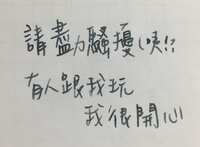 請盡力騷擾(咦!?
有人跟我玩
我很開心